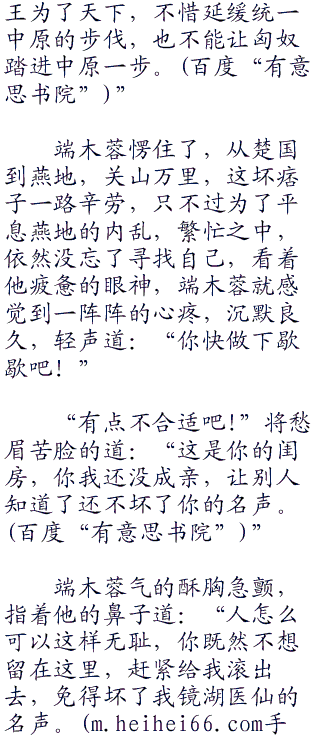 王为了天下，不惜延缓统一
中原的步伐，也不能让匈奴
踏进中原一步。(百度“有意
思书院”)”
端木蓉愣住了，从楚国
到燕地，关山万里，这坏痞
子一路辛劳，只不过为了平
息燕地的内乱，繁忙之中，
依然没忘了寻找自己，看着
他疲惫的眼神，端木蓉就感
觉到一阵阵的心疼，沉默良
久，轻声道：“你快做下歇
歇吧！”
“有点不合适吧!”将愁
眉苦脸的道：“这是你的闺
房，你我还没成亲，让别人
知道了还不坏了你的名声。
(百度“有意思书院”)”
端木蓉气的酥胸急颤，
指着他的鼻子道：“人怎么
可以这样无耻，你既然不想
留在这里，赶紧给我滚出
去，免得坏了我镜湖医仙的
名声。(m.heihei66.com手